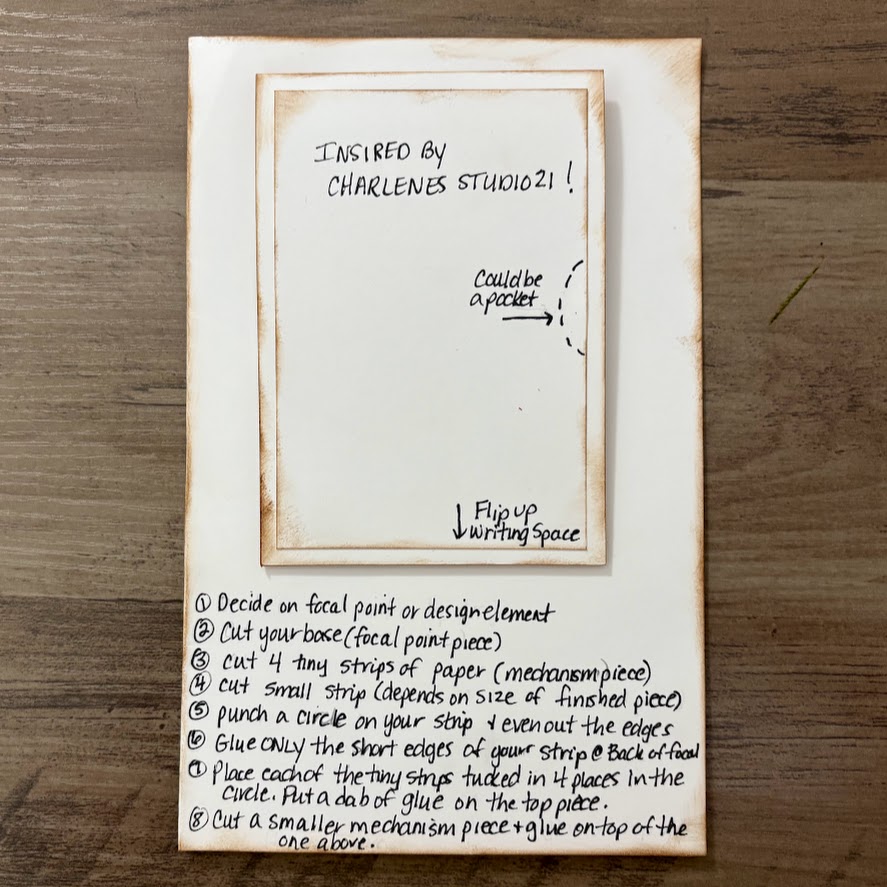 INSIRED BY
CHARLENES STUDIO21!
Could be
a pocket
Flip up
Writing Space
① Decide on focal point or design element
② Cut your base (focal point piece)
③ cut 4 tiny strips of paper (mechanism piece)
④ cut small strip (depends on size of finished piece)
⑤ punch a circle on your strip + even out the edges
⑥ Glue ONLY the short edges of your strip @ Back of focal
⑦ Place each of the tiny strps tucked in 4 places in the
circle. Put a dab of glue on the top piece.
⑧ Cut a smaller mechanism piece + glue on top of the
one above.